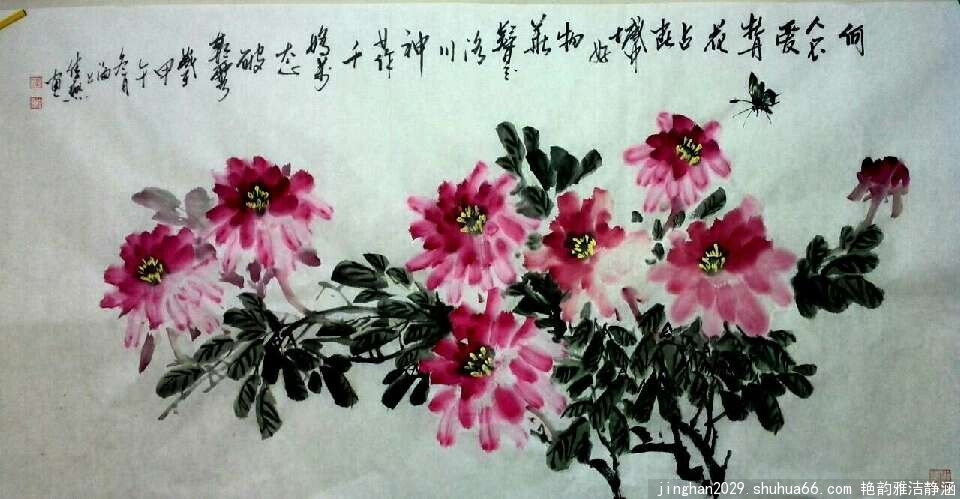 何人不爱牡丹花占断城中好物华疑是洛川神女作千娇万态破朝霞
甲午冬月上海
jinghan2029.shuhua66.com 艳韵雅洁静涵